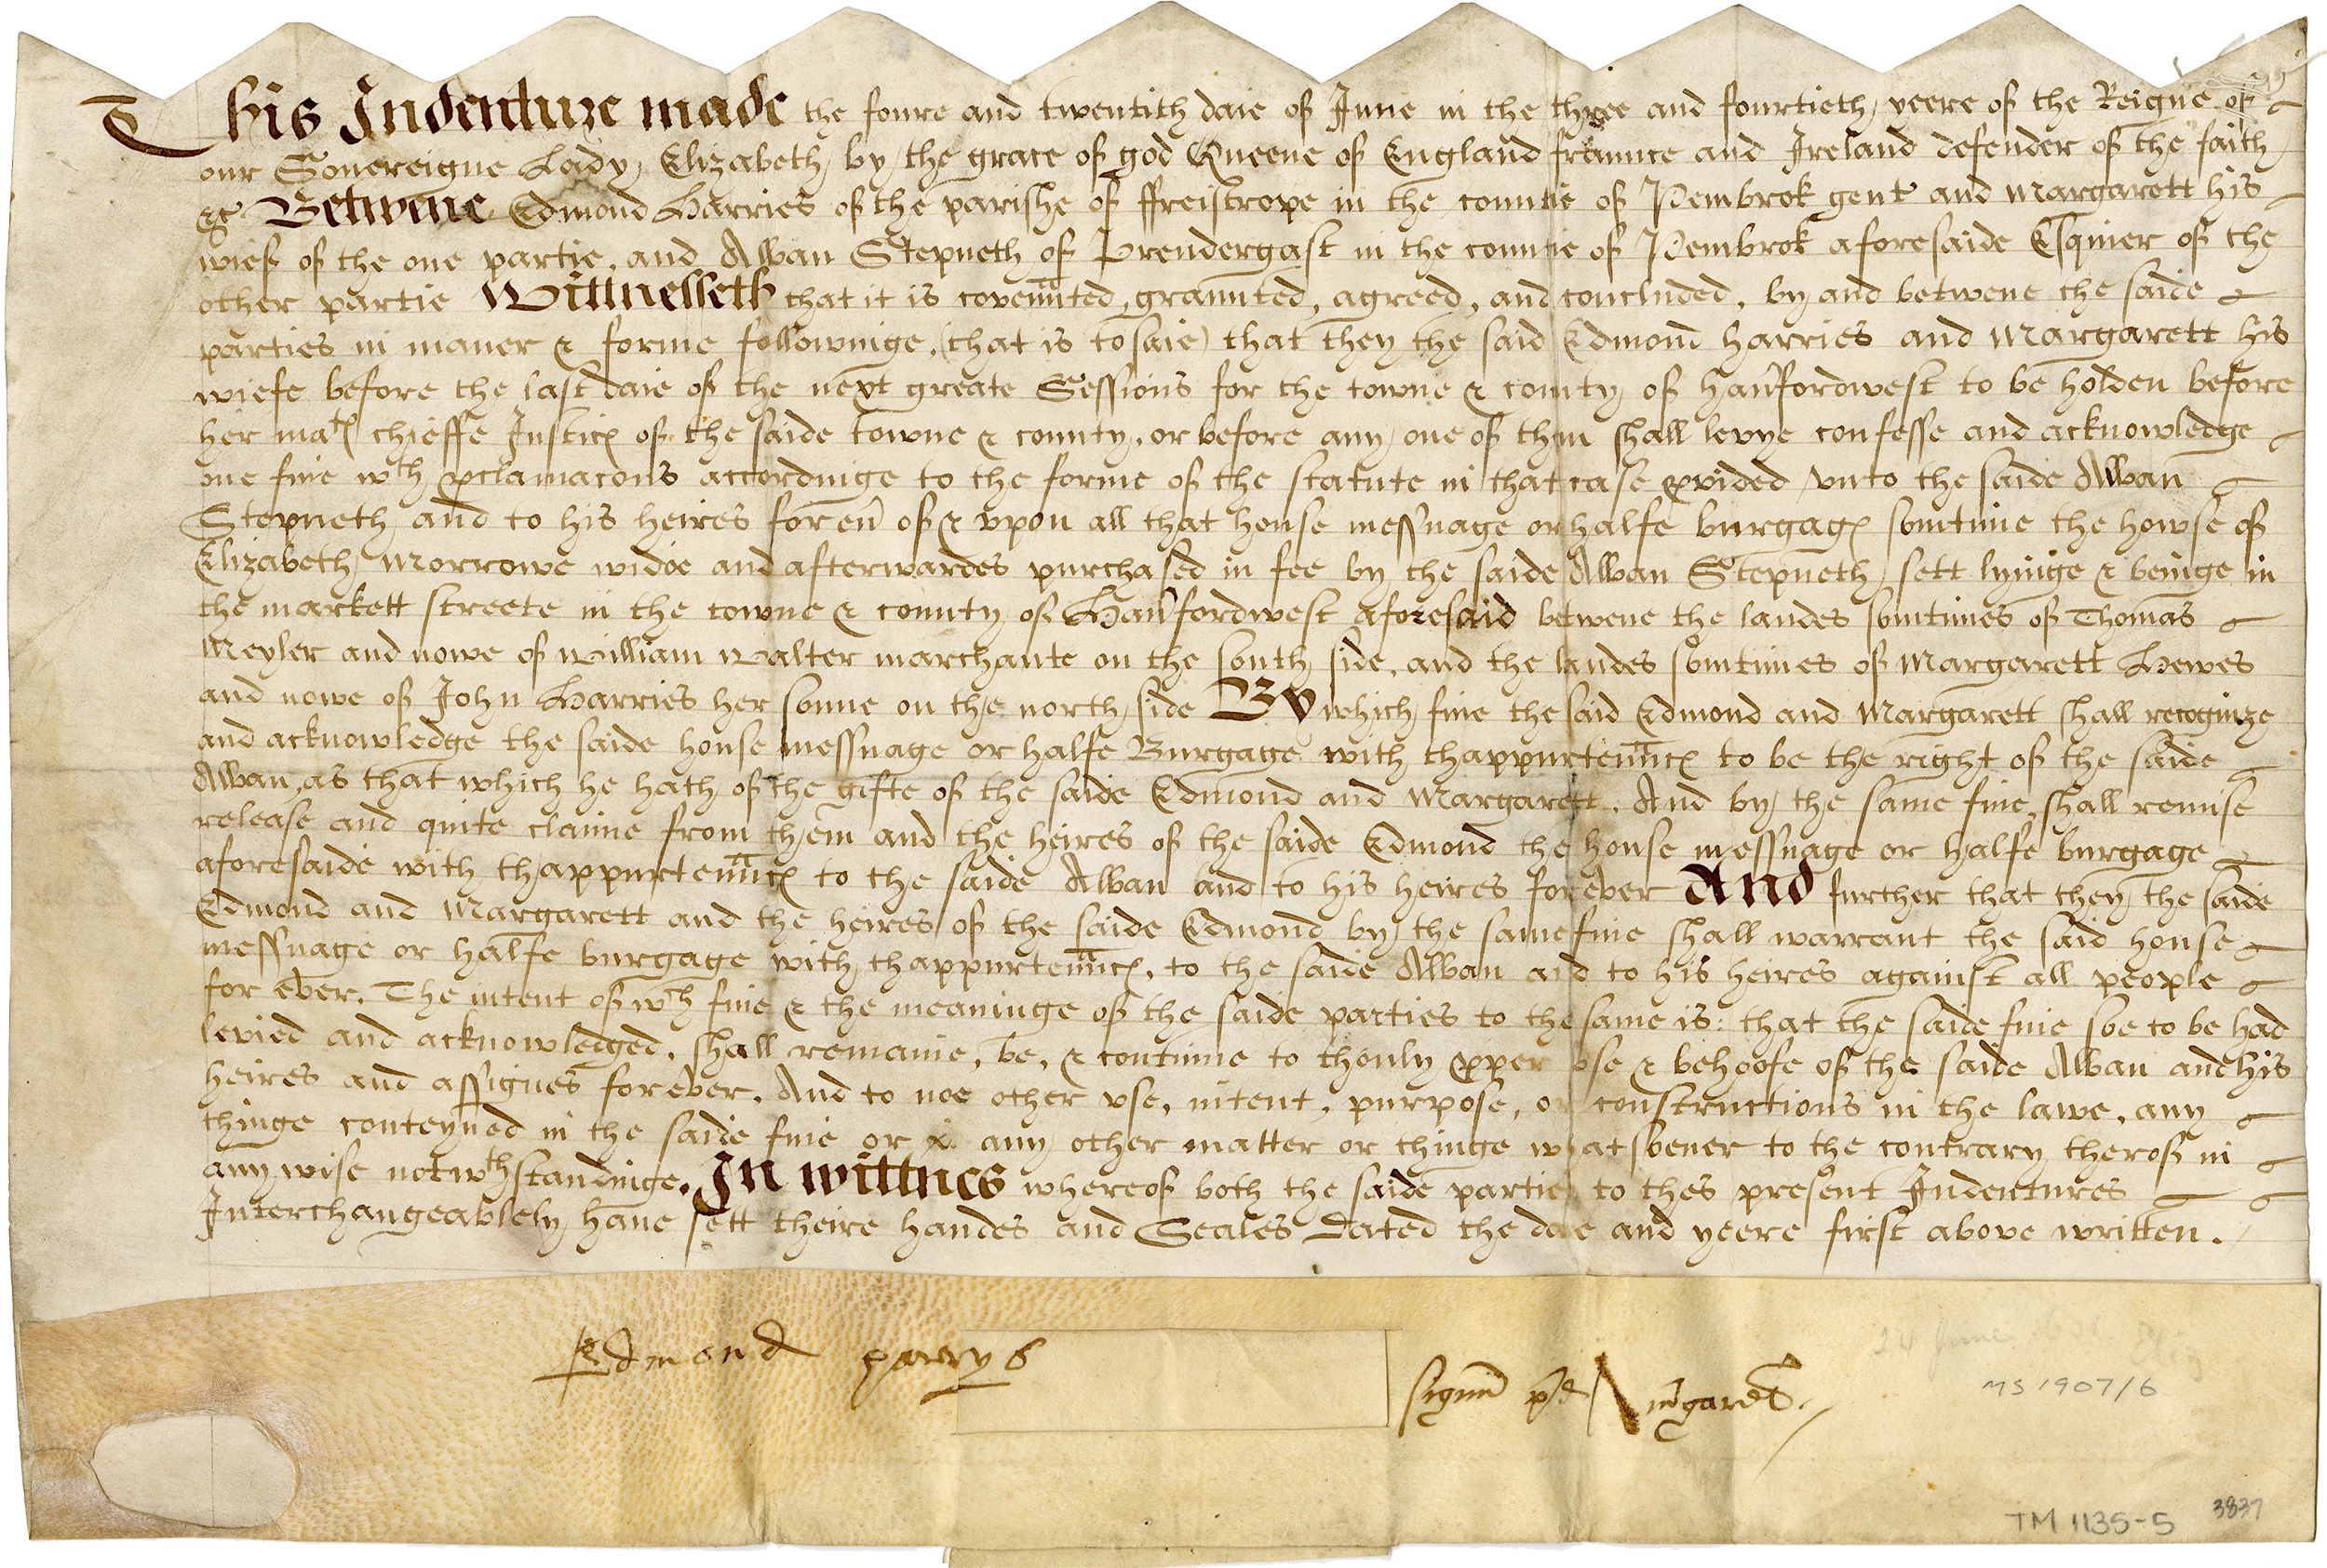 This Indenture made the foure and twentith daie of June in the three and fourtieth yeere of the Reigne of
our Souereigne Lady Elizabeth by the grace of god Queene of England fraunce and Ireland defender of the faith
&c Betwene Edmond Harries of the parishe of ffreistrope in the countie of Pembrok gent and Margarett his
wief of the one partie, and Alban Stepneth of Prendergast in the countie of Pembrok aforesaide Esquier of the
other partie Wittnesseth that it is coven̄nted, graunted, agreed, and concluded, by and betwene the saide
parties in maner & forme followinge, (that is to saie) that they the said Edmond harries and Margarett his
wiefe before the last daie of the next greate Sessions for the towne & county of Hau'fordwest to be holden before
her ma^ts chieffe Justic of the saide towne & county, or before any one of them shall levye confesse and acknowledge
one fine w^th pclamacons accordinge to the forme of the statute in that case pvided vnto the saide Alban
Stepneth and to his heires foreu' of & vpon all that house messuage or halfe burgag somtime the howse of
Elizabeth Morrowe widoe and afterwardes purchased in fee by the saide Alban Stepneth sett lyinge & beinge in
the markett streete in the towne & county of Hau'fordwest aforesaid betwene the landes somtimes of Thomas
Meyler and nowe of William Walter marchante on the south side, and the landes somtimes of Margarett Hewes
and nowe of John Harries her sonne on the north side By which fine the said Edmond and Margarett shall recognize
and acknowledge the saide house messuage or halfe Burgage with thappurten̄nc to be the right of the saide
Alban, as that which he hath of the gifte of the saide Edmond and Margarett. And by the same fine, shall remise
release and quite claime from them and the heires of the saide Edmond the house messuage or halfe burgage
aforesaide with thappurten̄nc to the saide Alban and to his heires for ever And further that they the saide
Edmond and Margarett and the heires of the saide Edmond by the same fine shall warrant the said house
messuage or halfe burgage with thappurten̄nc, to the saide Alban and to his heires against all people
for ever. The intent of w^ch fine & the meaninge of the saide parties to the same is: that the saide fine soe to be had
levied and acknowledged, shall remaine, be, & continue to thonly pper vse & behoofe of the saide Alban and his
heires and assignes for ever. And to noe other vse, intent, purpose, or constructions in the lawe, any
thinge conteyned in the saide fine or any other matter or thinge whatsoever to the contrary therof in
any wise notw^thstandinge. In wittnes whereof both the saide parties to thes present Indentures
Interchangeablely haue sett theire handes and Seales Dated the daie and yeere first above written.
Edmond harrys
signū p'd m'garet
24 June
MS 1907/6
TM 1135-5 3837